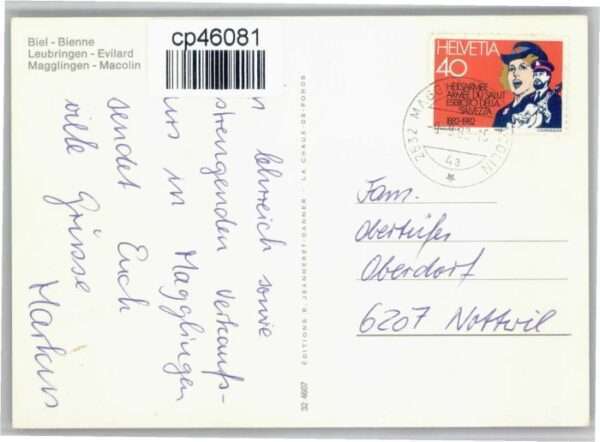 Biel - Bienne
Leubringen - Evilard
Magglingen - Macolin
cp46081
n lehrreich sowie
strengenden Verkaufs-
urs in Magglingen
sendet Euch
viele Grüsse
Markus
32 4607 EDITIONS R. JEANNERET-DANNER - LA CHAUX-DE-FONDS
HELVETIA
40
HEILSARMEE
ARMÉE DU SALUT
ESERCITO DELLA
SALVEZZA
1882-1982
2532 MAGG OLIN
4a
Fam.
Obertüfer
Oberdorf
6207 Nottwil